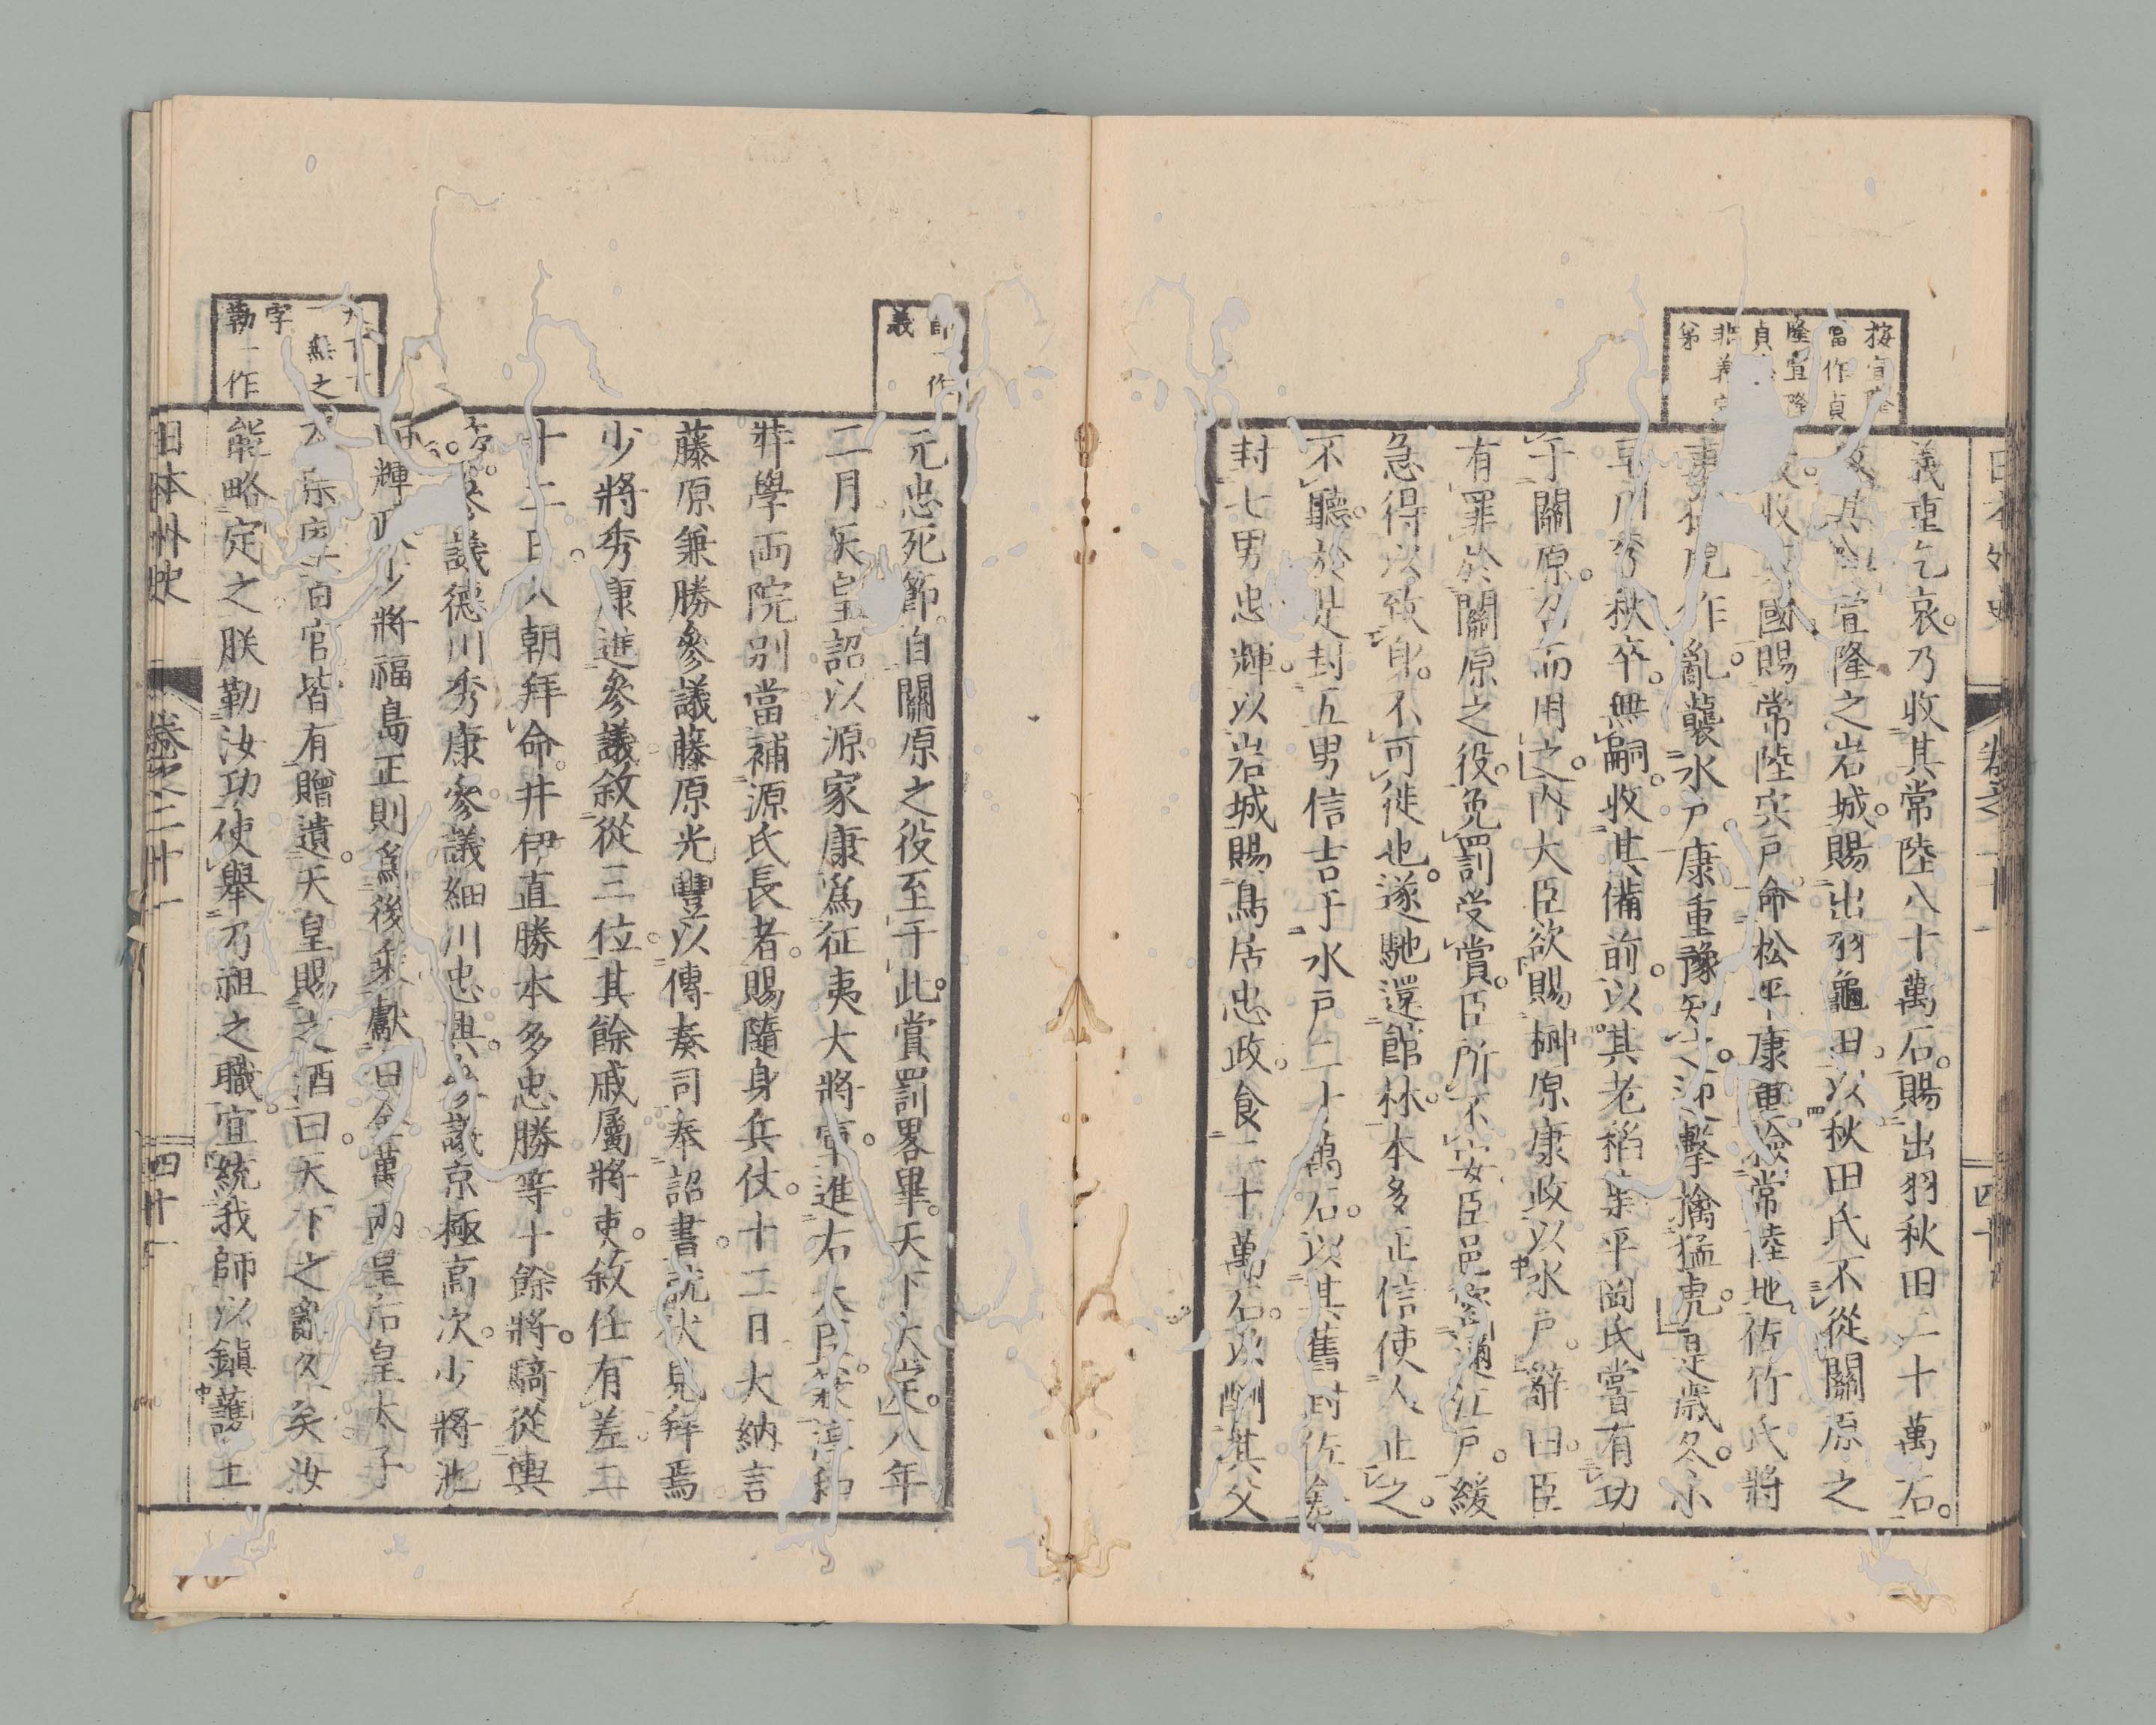 日本外史
卷之二十一
四十
按宜隆
當作貞
隆宜隆
貞
非義宣
弟
義重乞哀乃收其常陸八十萬石賜出羽秋田二十萬石
宣隆之岩城賜出羽龜田以秋田氏不從關原之
收國賜常陸宍戶命松平康重撿常陸地佐竹氏將
虎作亂襲水戶康重豫知之迎擊擒猛虎是歲冬小
早川秀秋卒無嗣收其備前以其老稻葉平岡氏嘗有功
于關原召而用之內大臣欲賜榊原康政以水戶辭曰臣
有罪於關原之役免罰受賞臣所不安臣邑密邇江戶緩
急得以致身不可徙也遂馳還館林本多正信使人止之
不聽於是封五男信吉于水戶二十萬石以其舊封佐倉
封七男忠輝以岩城賜鳥居忠政食二十萬石以酬其父
一作
義
元忠死節自關原之役至于此賞罰畧畢天下大定八年
二月天皇詔以源家康爲征夷大將軍進右大臣兼淳和
弉學兩院別當補源氏長者賜隨身兵仗十二日大納言
藤原兼勝參議藤原光豐以傳奏司奉詔書就伏見拜焉
少將秀康進參議敘從三位其餘戚屬將吏敘任有差二
十二日入朝拜命井伊直勝本多忠勝等十餘將騎從輿
參議德川秀康參議細川忠興參議京極高次少將池
田輝政少將福島正則爲後乘獻白金萬兩皇后皇太子
百官皆有贈遺天皇賜之酒曰天下之亂久矣汝
能略定之朕勒汝功使舉乃祖之職宜統我師以鎭護王
一無之
字
勒一作
日本外史
卷之二十一
四十一